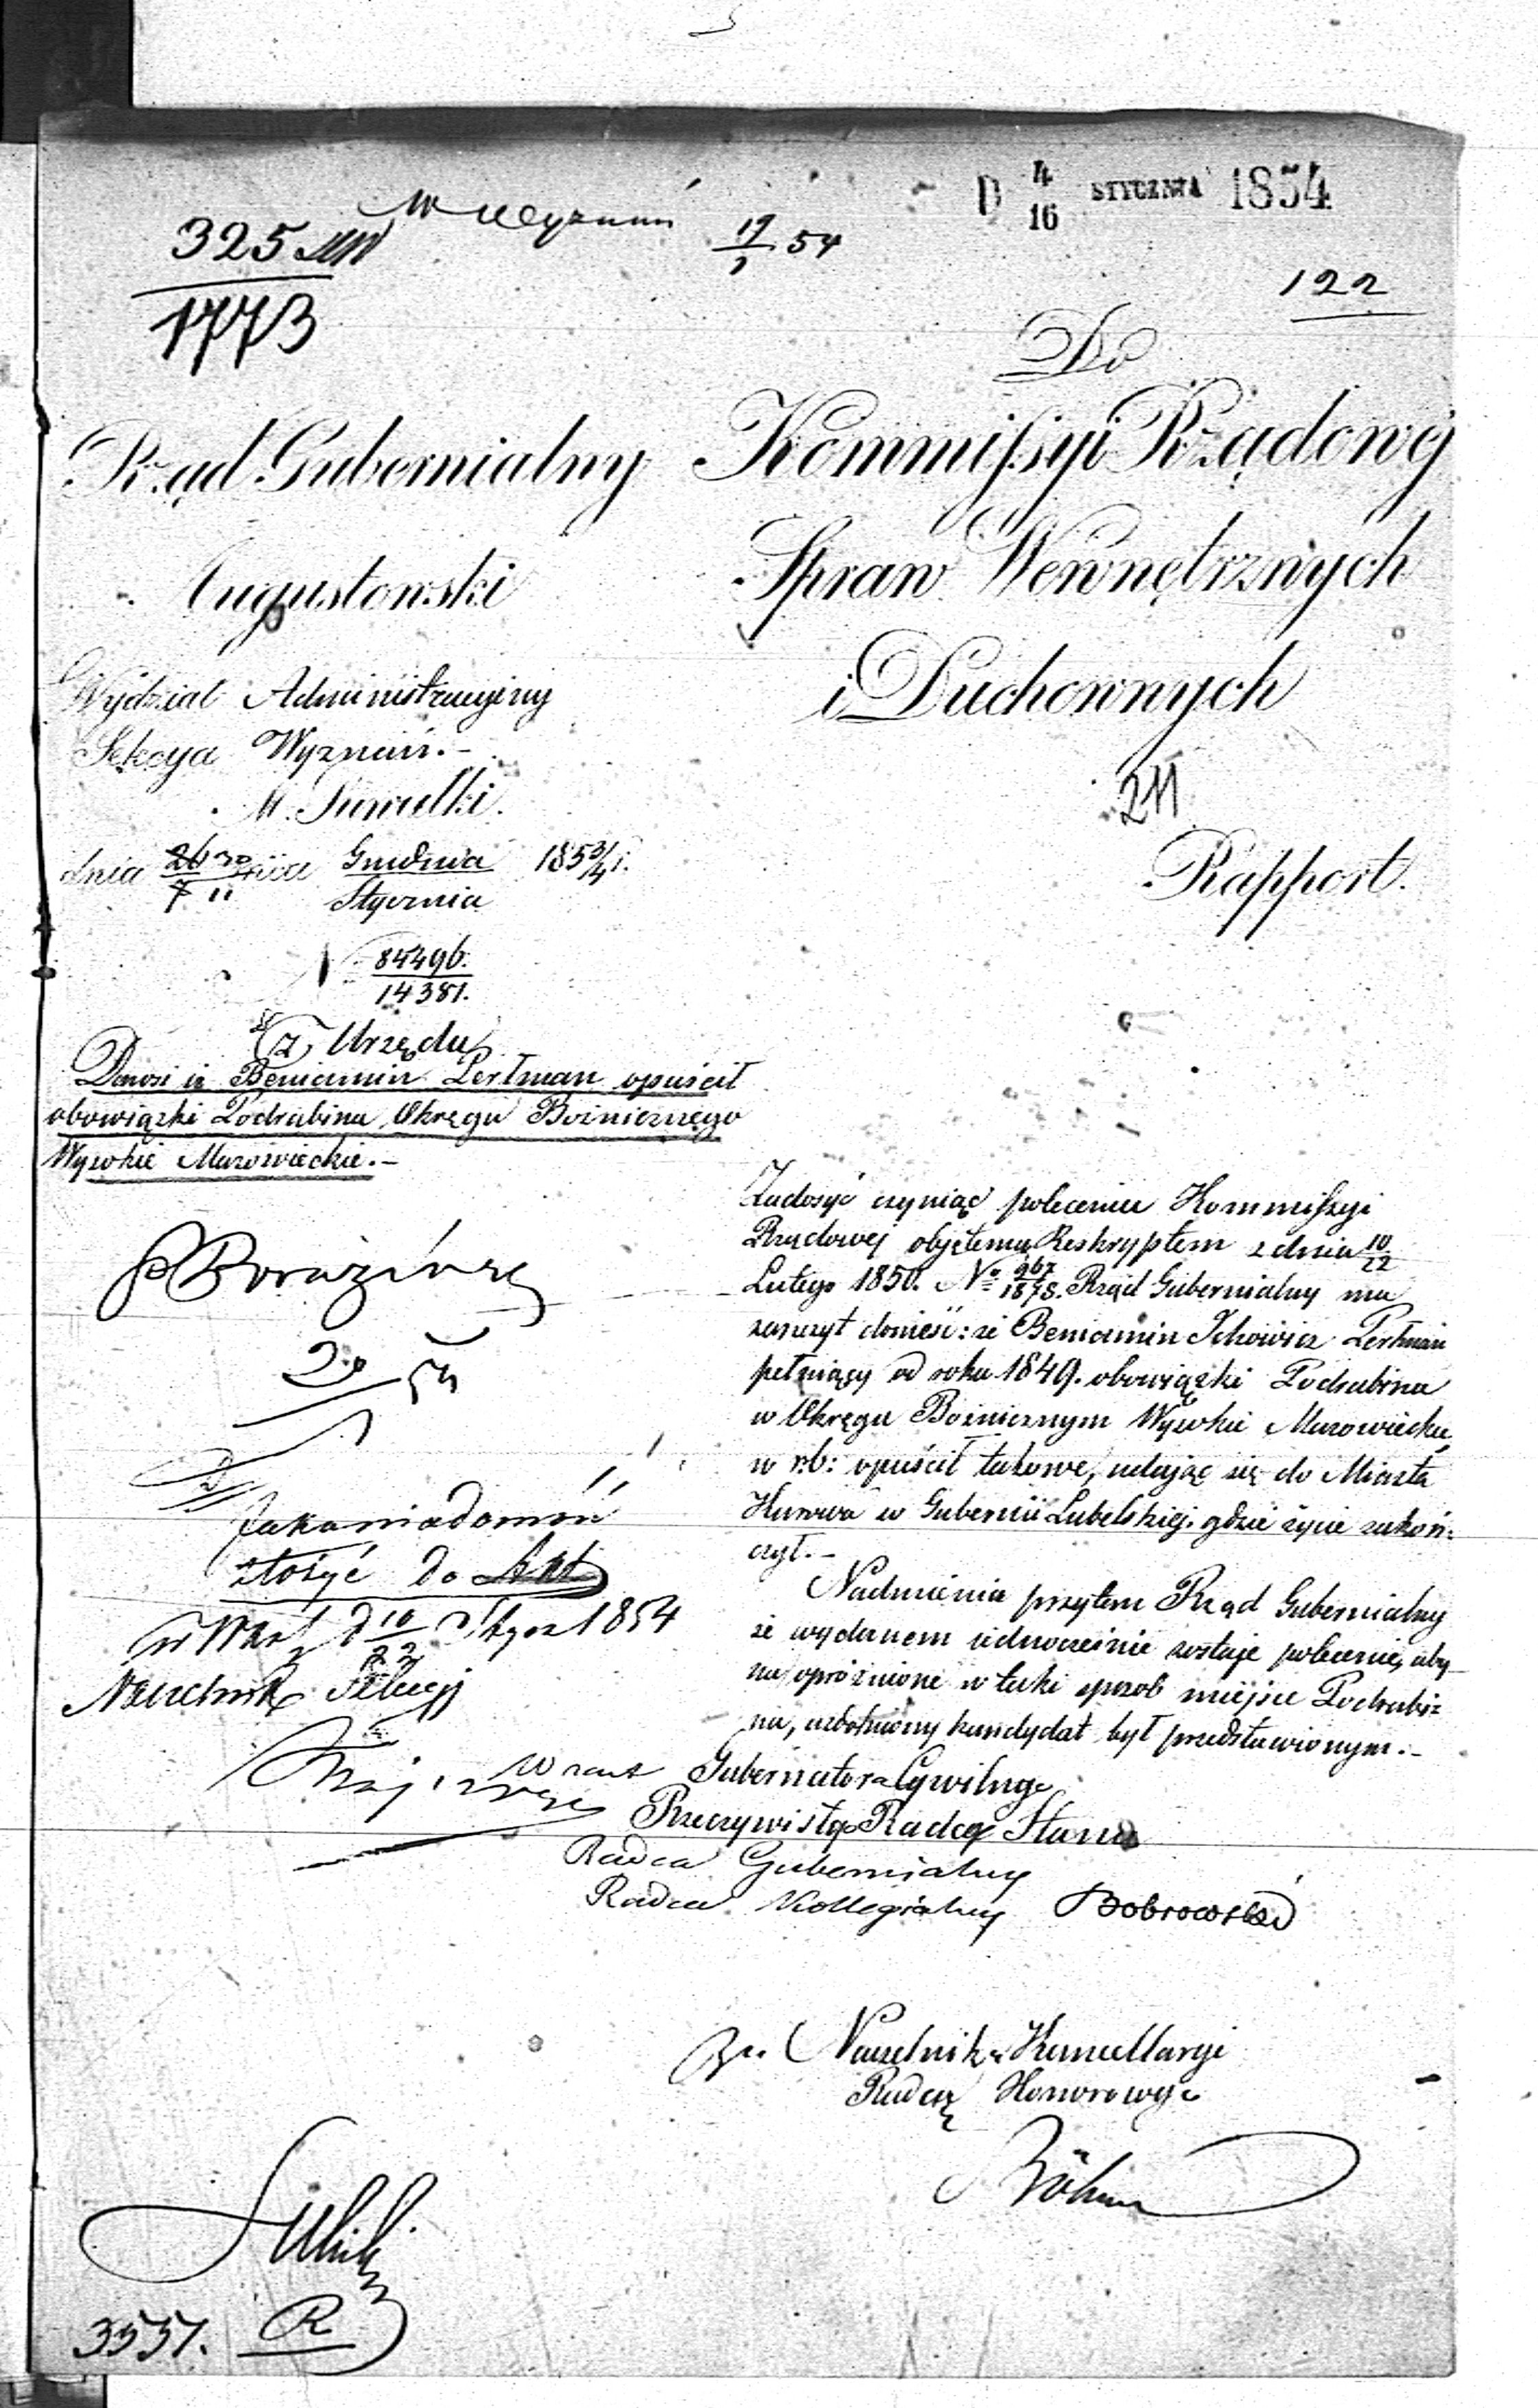 D 4/16 STYCZNIA 1854
W Wyznań
19/1 54
325
1773
122
Do
Rząd Gubernialny
Augustowski
Kommissyi Rządowej
Spraw Wewnętrznych
i Duchownych
211
Rapport.
Wydział Administracyjny
Sekcya Wyznań.-
M. Suwałki.
dnia 26 30/7 11 Grudnia/Stycznia 1853/4 r.
N 85496./14381.
Z Urzędu
Donosi iż Beniamin Perłman opuścił
obowiązki Podrabina Okręgu Bożnicznego
Wysokie Mazowieckie.-
Zadosyć czyniąc poleceniu Kommissyi
Rządowej objętemu Reskryptem z dnia 10/22
Lutego 1850. No 967/1878. Rząd Gubernialny ma
zaszczyt donieść: że Beniamin Ickowicz Perłman
pełniący od roku 1849. obowiązki Podrabina
w Okręgu Bożnicznym Wysokie Mazowieckie,
w r:b: opuścił takowe, udając się do Miasta
Kurowa w Gubernii Lubelskiej, gdzie życie zakoń-
czył.-
Nadmienia przytem Rząd Gubernialny
że wydanem jednocześnie zostaje polecenie, aby
na opróżnione w taki sposób miejsce Podrabi-
na, uzdolniony kandydat był przedstawionym.-
Jako wiadomość
złożyć do Akt
w Warz d 10/22 Stycz 1854
Naczelnik Sekcyi
W zast Gubernatora Cywilnego
Rzeczywistego Radcy Stanu
Radca Gubernialny
Radca Kollegialny Bobrowski
Za Naczelnika Kancellaryi
Radca Honorowy
Böhm
3551. R